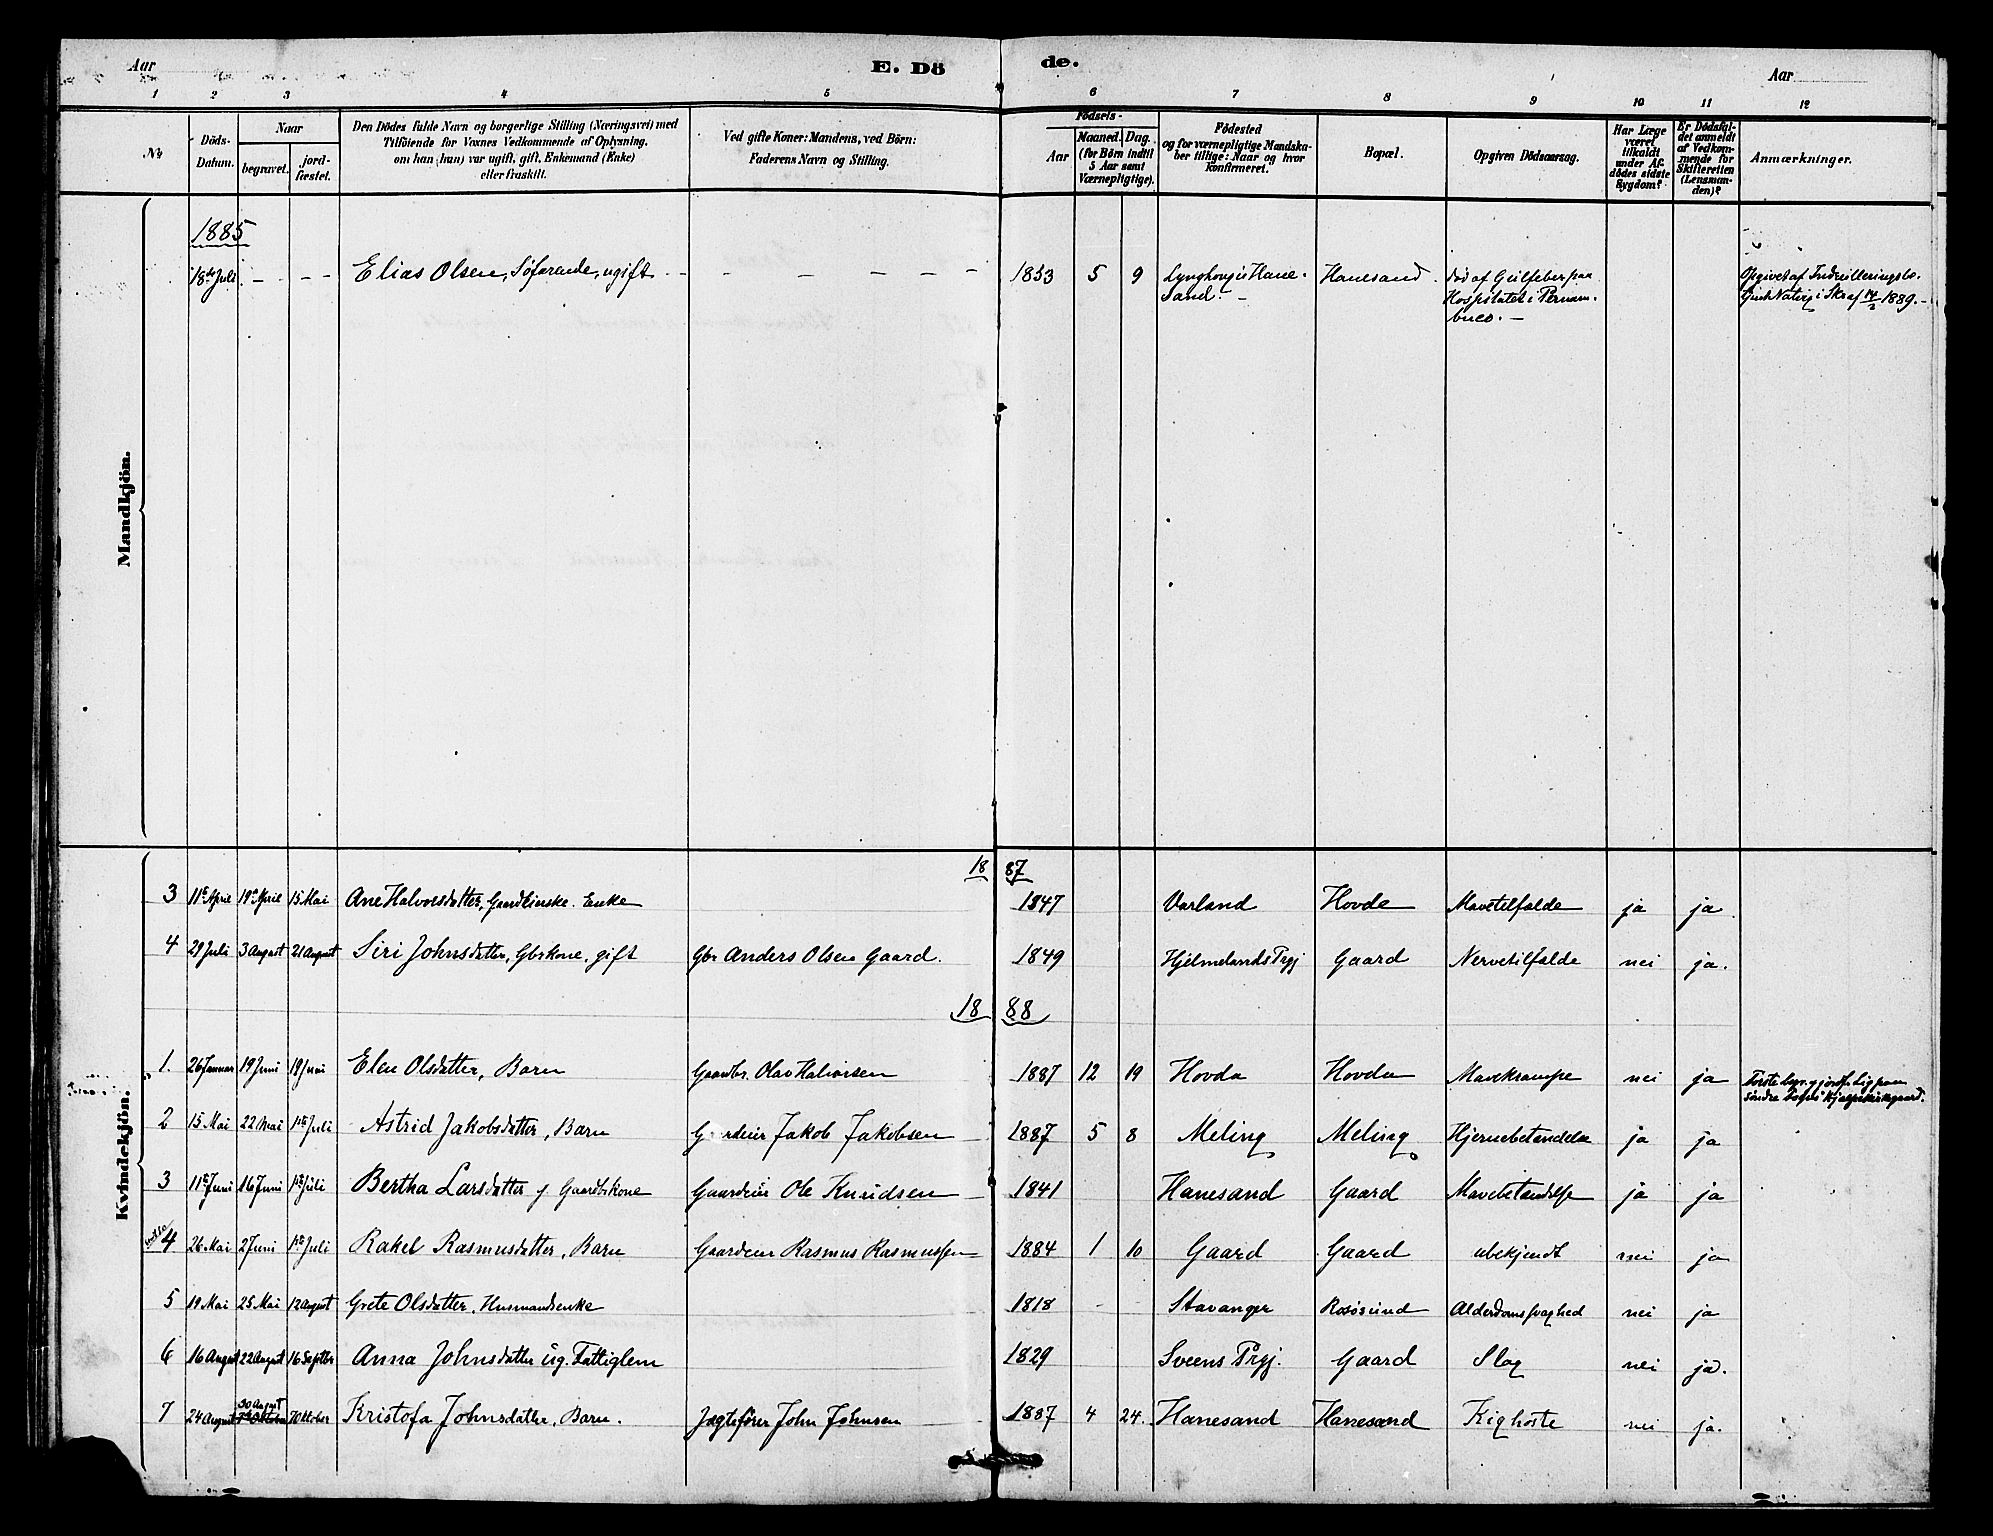 Aar
E. Dö
de.
Aar
1 2 3 4 5 6 7 8 9 10 11 12
No
Döds-
Datum.
Naar
begravet.
jord-
fæstet.
Den Dödes fulde Navn og borgerlige Stilling (Næringsvei) med
Tilföiende for Voxnes Vedkommende af Oplysning,
om han (hun) var ugift, gift, Enkemand (Enke)
eller fraskilt.
Ved gifte Koner: Mandens, ved Börn:
Faderens Navn og Stilling.
Födsels-
Aar
Maaned. Dag.
(for Börn indtil
5 Aar samt
Værnepligtige).
Födested
og for værnepligtige Mandska-
ber tillige: Naar og hvor
konfirmeret.
Bopæl.
Opgiven Dödsaarsag.
Har Læge
været
tilkaldt
under Af-
dödes sidste
Sygdom?
Er Dödsfal-
det anmeldt
af Vedkom-
mende for
Skifteretten
(Lensman-
den)?
Anmærkninger.
Mandkjön.
1885
18de Juli - - - Elias Olsen, Söfarende, ugift - - - - - - 1853 5 9 Lynghoug i Hane-
sand. - Hanesand. död af Gulfeber paa
Hospitalet i Pernam-
buco. -
Opgivet af Indrulleringsbe.
i Skr af 14/2 1889. -
Kvindekjön.
18 87
3 11te April 19de April 15 Mai Ane Halvorsdatter, Enke 1847 Varland Hovde Mavetilfælde ja ja
4 29 Juli 3 August 21 August Siri Johnsdatter, Gbrkone, gift Gbr Anders Olsen Gaard. 1849 Hjelmelands Prgj Gaard Nervetilfælde nei ja.
18 88
1. 26 Januar 19 Juni 19 Juni Elen Olsdatter, Barn Gaardbr. Olav Halvorsen 1887 12 19 Hovda Hovda Mavekrampe nei ja
2 15 Mai 22 Mai 1ste Juli Astrid Jakobsdatter, Barn Gaardeier Jakob Jakobsen 1887 5 8 Meling Meling Hjernebetændelse ja ja
3 11te Juni 16 Juni 1ste Juli Bertha Larsdatter g Gaardbrkone Gaardeier Ole Knudsen 1841 Hanesand Gaard Mavebetændelse ja ja
4 26 Mai 2 Juni 1ste Juli Rakel Rasmusdatter, Barn Gaardeier Rasmus Rasmussen 1884 1 10 Gaard Gaard ubekjendt nei ja
5 19 Mai 25 Mai 12 August Grete Olsdatter, Husmandsenke 1818 - - Stavanger Rosösund Alderdomssvaghed nei ja
6 16 August 22 August 16 Septbr Anna Johnsdatter ug. Fattiglem 1829 Sveens Prgj. Gaard Slag nei ja.
30 August
7 24 August 7 Oktober Kristofa Johnsdatter, Barn. Jagtefører John Johnsen 1887 4 24. Hanesand Hanesand Kighoste nei ja.